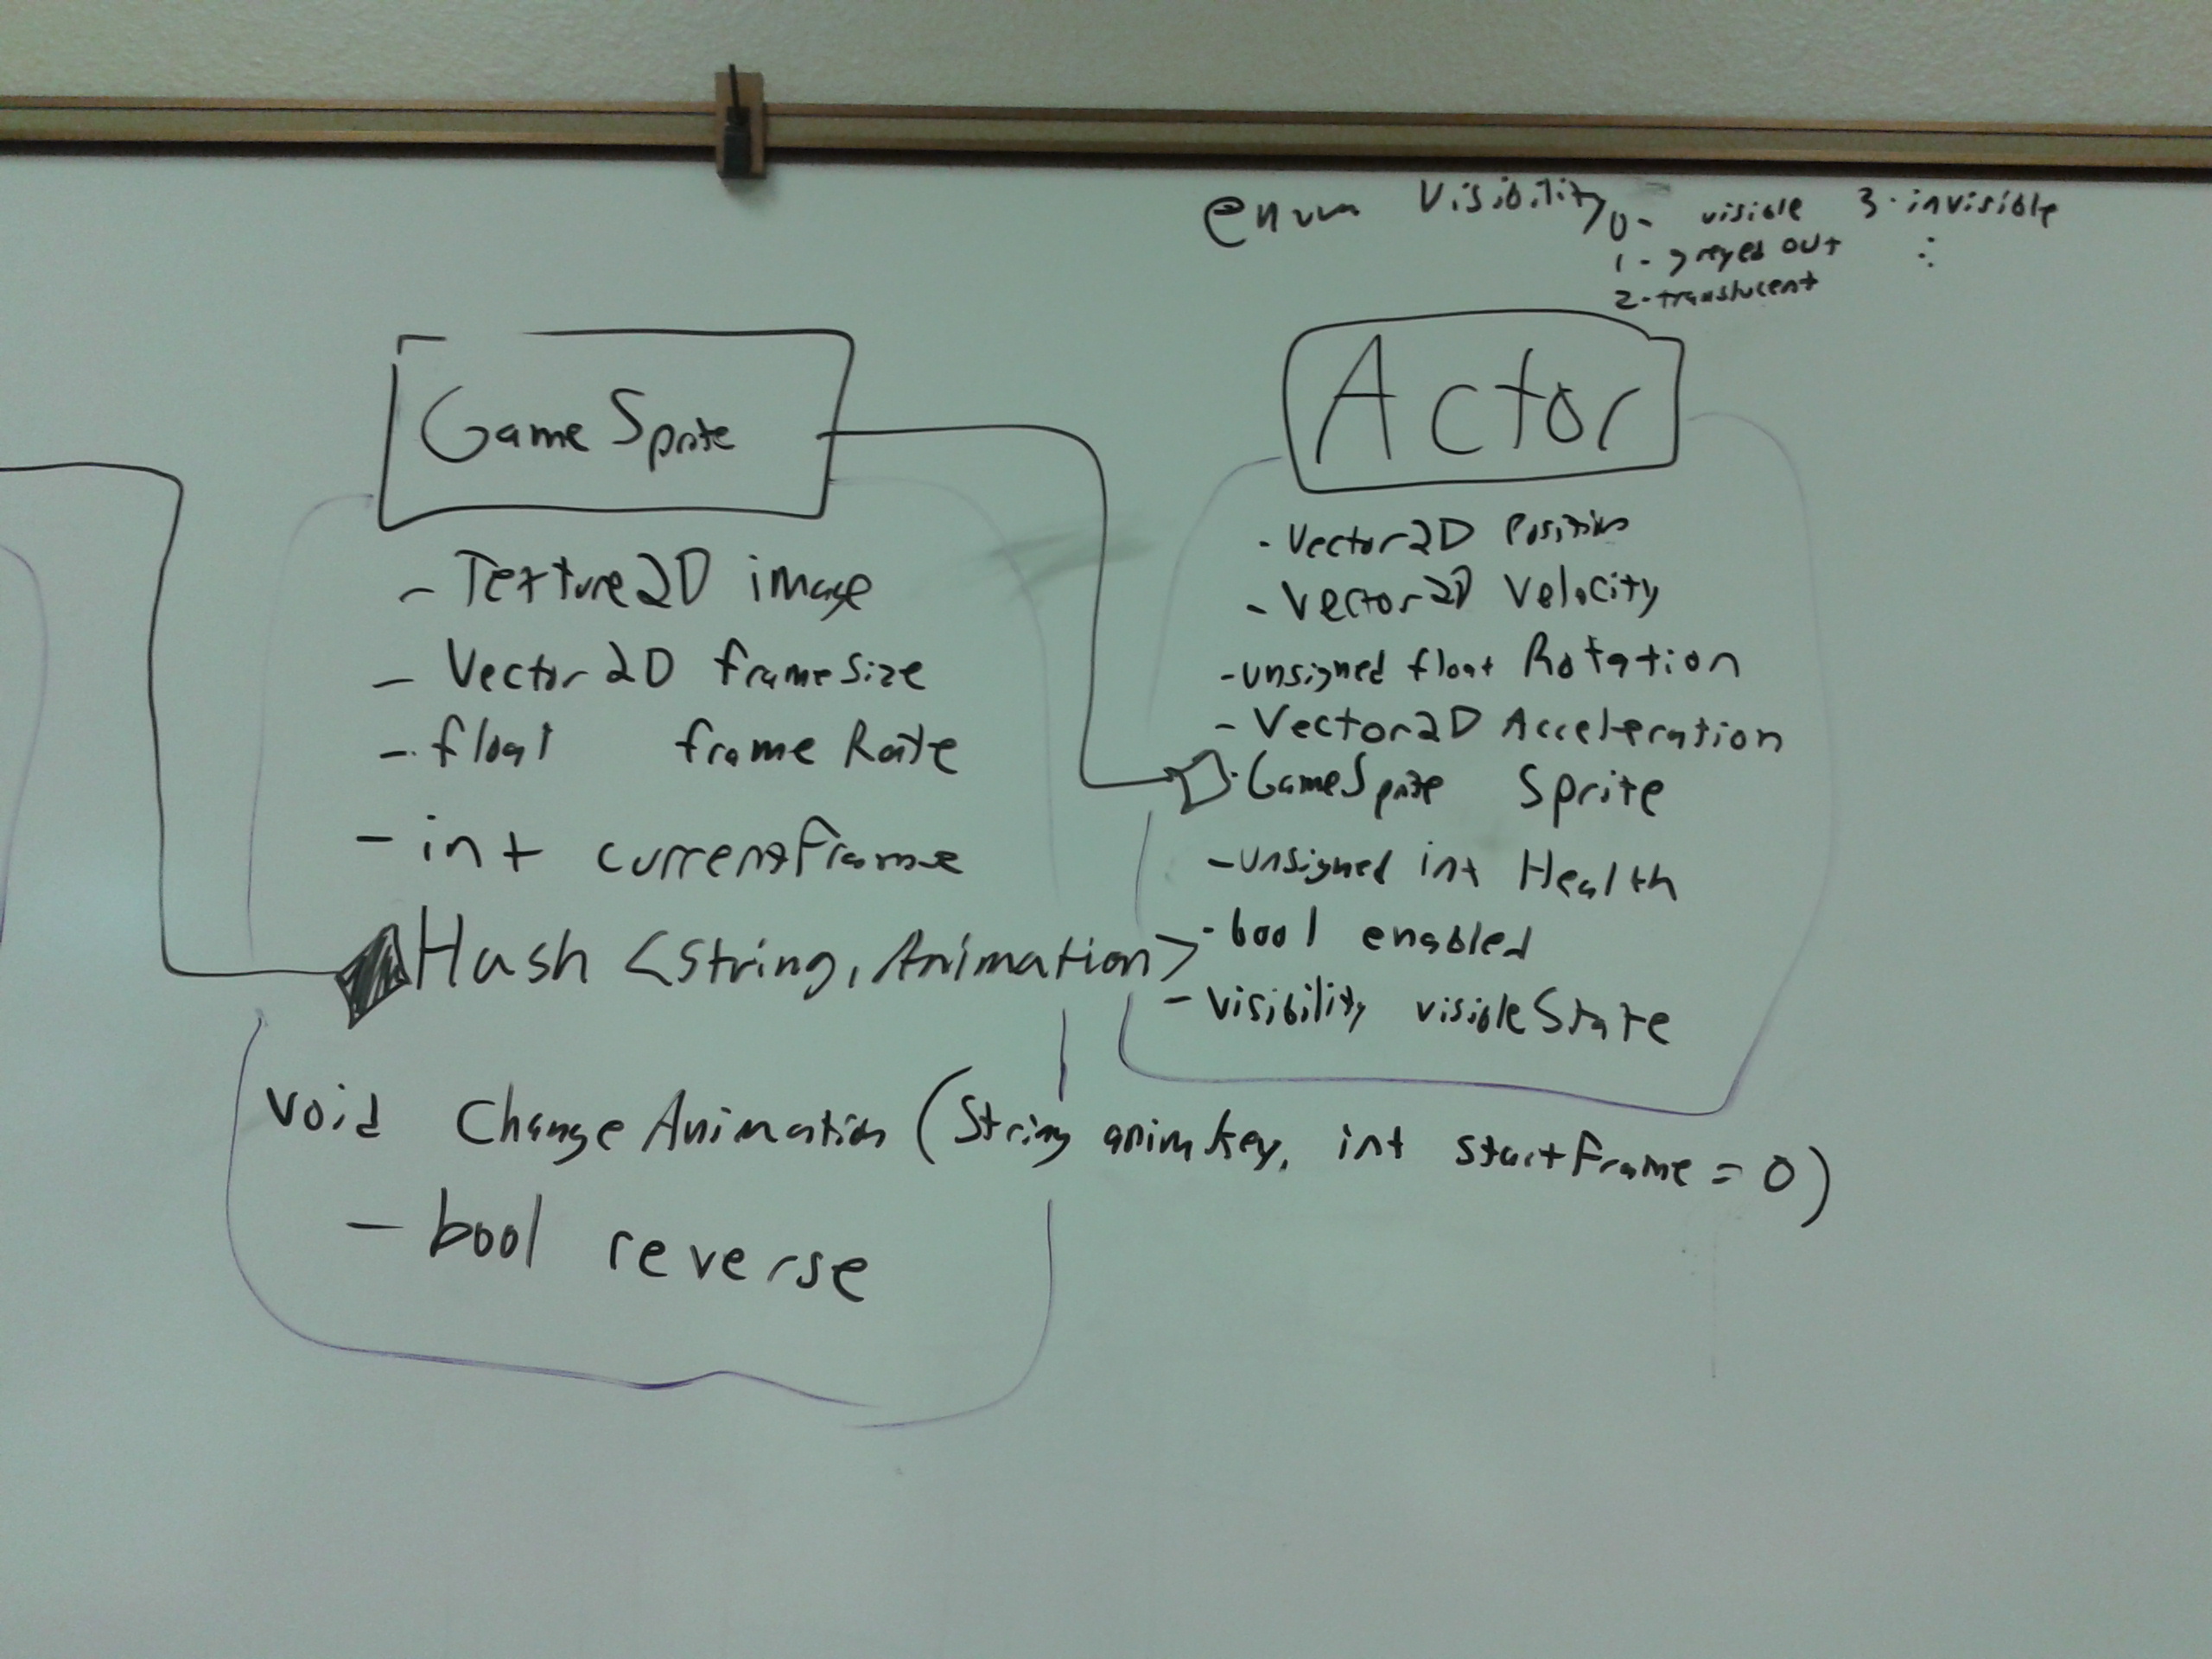 enum Visibility 0- visible 3-invisible
1-greyed out
2-translucent
GameSprite
- Texture2D image
- Vector2D frameSize
- float frameRate
- int currentFrame
Hash <String, Animation>
void ChangeAnimation (String animKey, int startFrame = 0)
- bool reverse
Actor
- Vector2D Position
- Vector2D Velocity
- unsigned float Rotation
- Vector2D Acceleration
- GameSprite Sprite
- unsigned int Health
- bool enabled
- Visibility visibleState